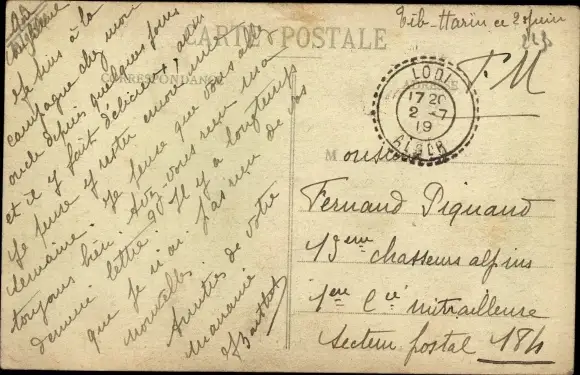 CARTE POSTALE
CORRESPONDANCE
Tib-Harïn ce 2 juin
F. M
LODI
17 20
2 -7
19
ALGER
Monsieur
Fernand Pignand
13eme chasseurs alpins
1ere Cie mitrailleuse
Secteur postal 184
Je suis à la
campagne chez mon
oncle depuis quelques jours
et il y fait délicieux, aussi
je pense y rester encore une
semaine. Je pense que vous allez
toujours bien. Avez-vous reçu ma
dernière lettre? Il y a longtemps
que je n'ai pas reçu de vos
nouvelles.
Amitiés de votre
marraine